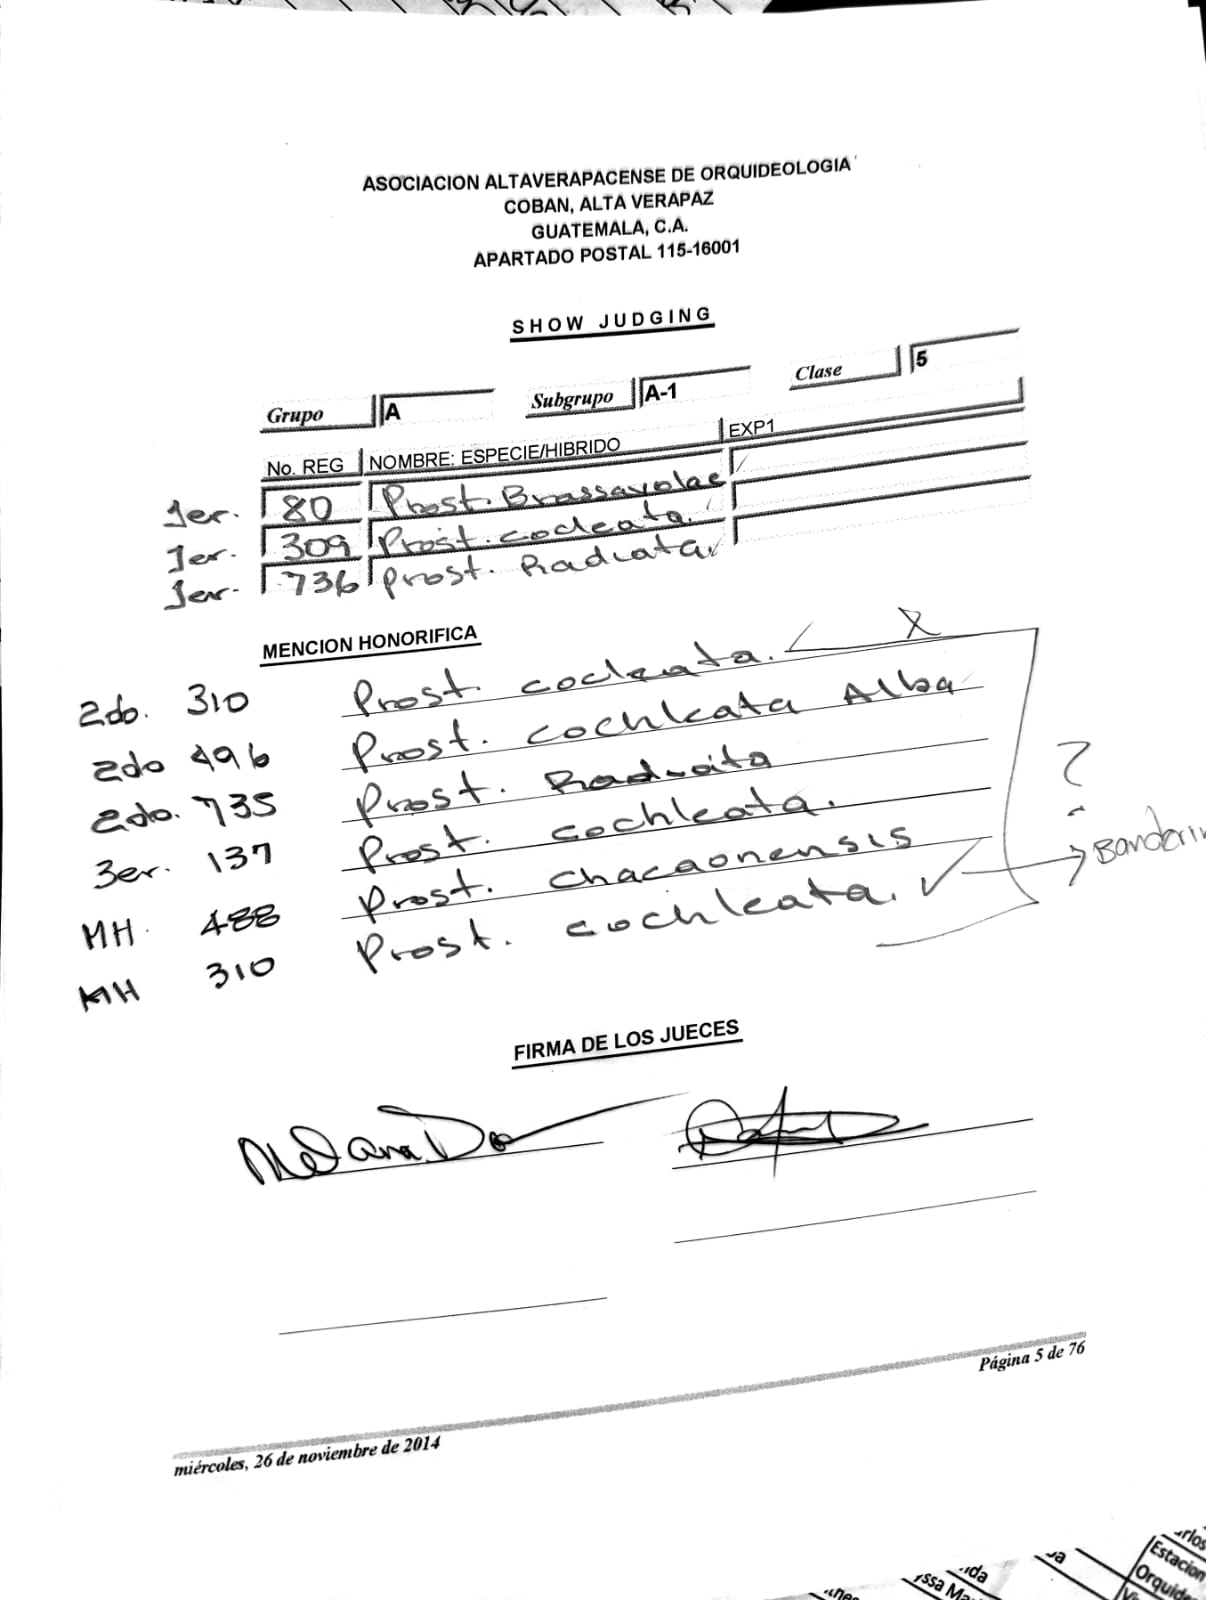 ASOCIACION ALTAVERAPACENSE DE ORQUIDEOLOGIA
COBAN, ALTA VERAPAZ
GUATEMALA, C.A.
APARTADO POSTAL 115-16001
SHOW JUDGING
Grupo A Subgrupo A-1 Clase 5
No. REG NOMBRE: ESPECIE/HIBRIDO EXP1
1er. 80 Prost. Brassavolae
1er. 309 Prost. cocleata.
1er. 736 Prost. Radiata.
MENCION HONORIFICA
2do. 310 Prost. cocleata. X
2do 496 Prost. cochleata Alba
2do. 735 Prost. Radiata
3er. 137 Prost. cochleata. ?
MH. 488 Prost. chacaonensis
MH 310 Prost. cochleata. ✓ → Banderin
FIRMA DE LOS JUECES
Página 5 de 76
miércoles, 26 de noviembre de 2014
Estacion